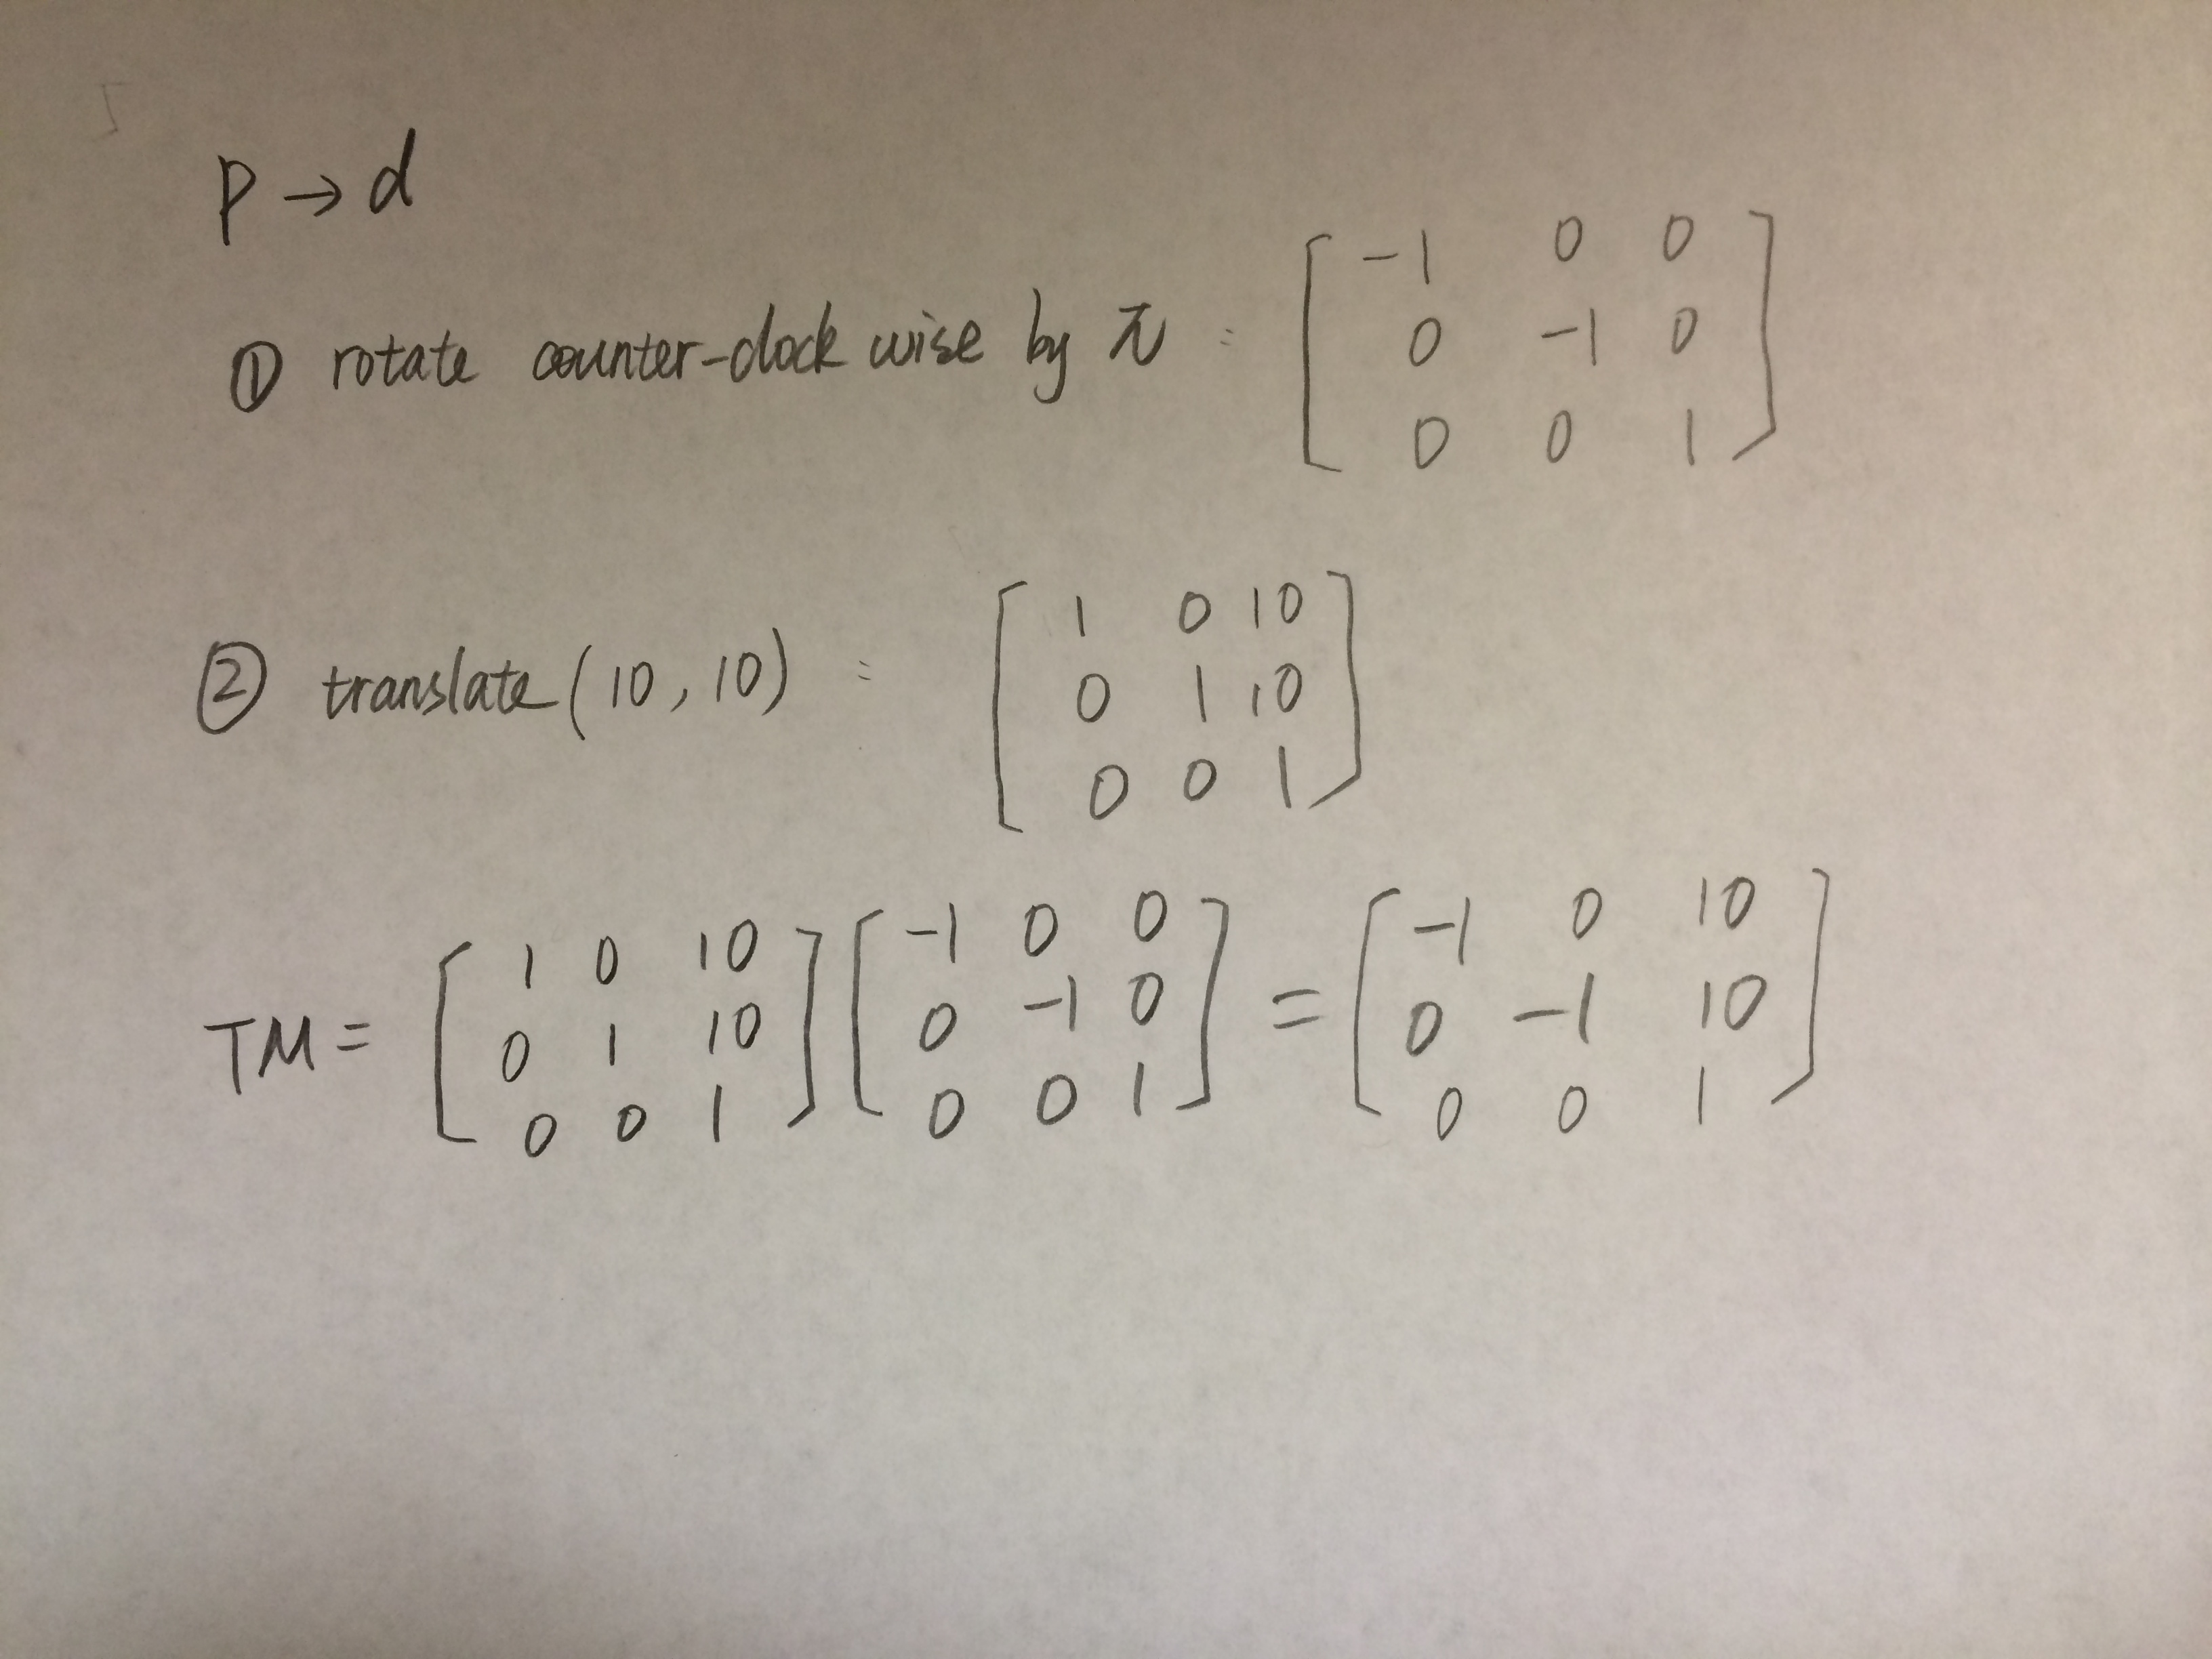 p → d
① rotate counter-clockwise by π : [ -1 0 0
0 -1 0
0 0 1 ]
② translate (10, 10) : [ 1 0 10
0 1 10
0 0 1 ]
TM = [ 1 0 10 ] [ -1 0 0 ] = [ -1 0 10 ]
[ 0 1 10 ] [ 0 -1 0 ] [ 0 -1 10 ]
[ 0 0 1 ] [ 0 0 1 ] [ 0 0 1 ]